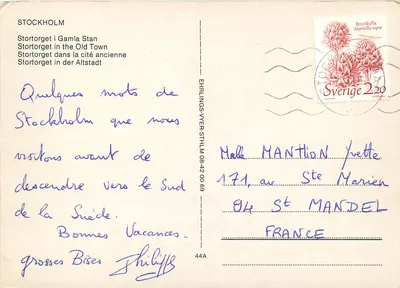 STOCKHOLM
Stortorget i Gamla Stan
Stortorget in the Old Town
Stortorget dans la cité ancienne
Stortorget in der Altstadt
Quelques mots de
Stockholm que nous
visitons avant de
descendre vers le Sud
de la Suède.
Bonnes Vacances.
grosses Bises Philippe
EHRLINGS-VYER-STHLM-08-42 00 69
44A
Brunkulla
Nigritella nigra
Sverige 2.20
Melle MANTHION Yvette
171, av Ste Marien
94 St MANDEL
FRANCE